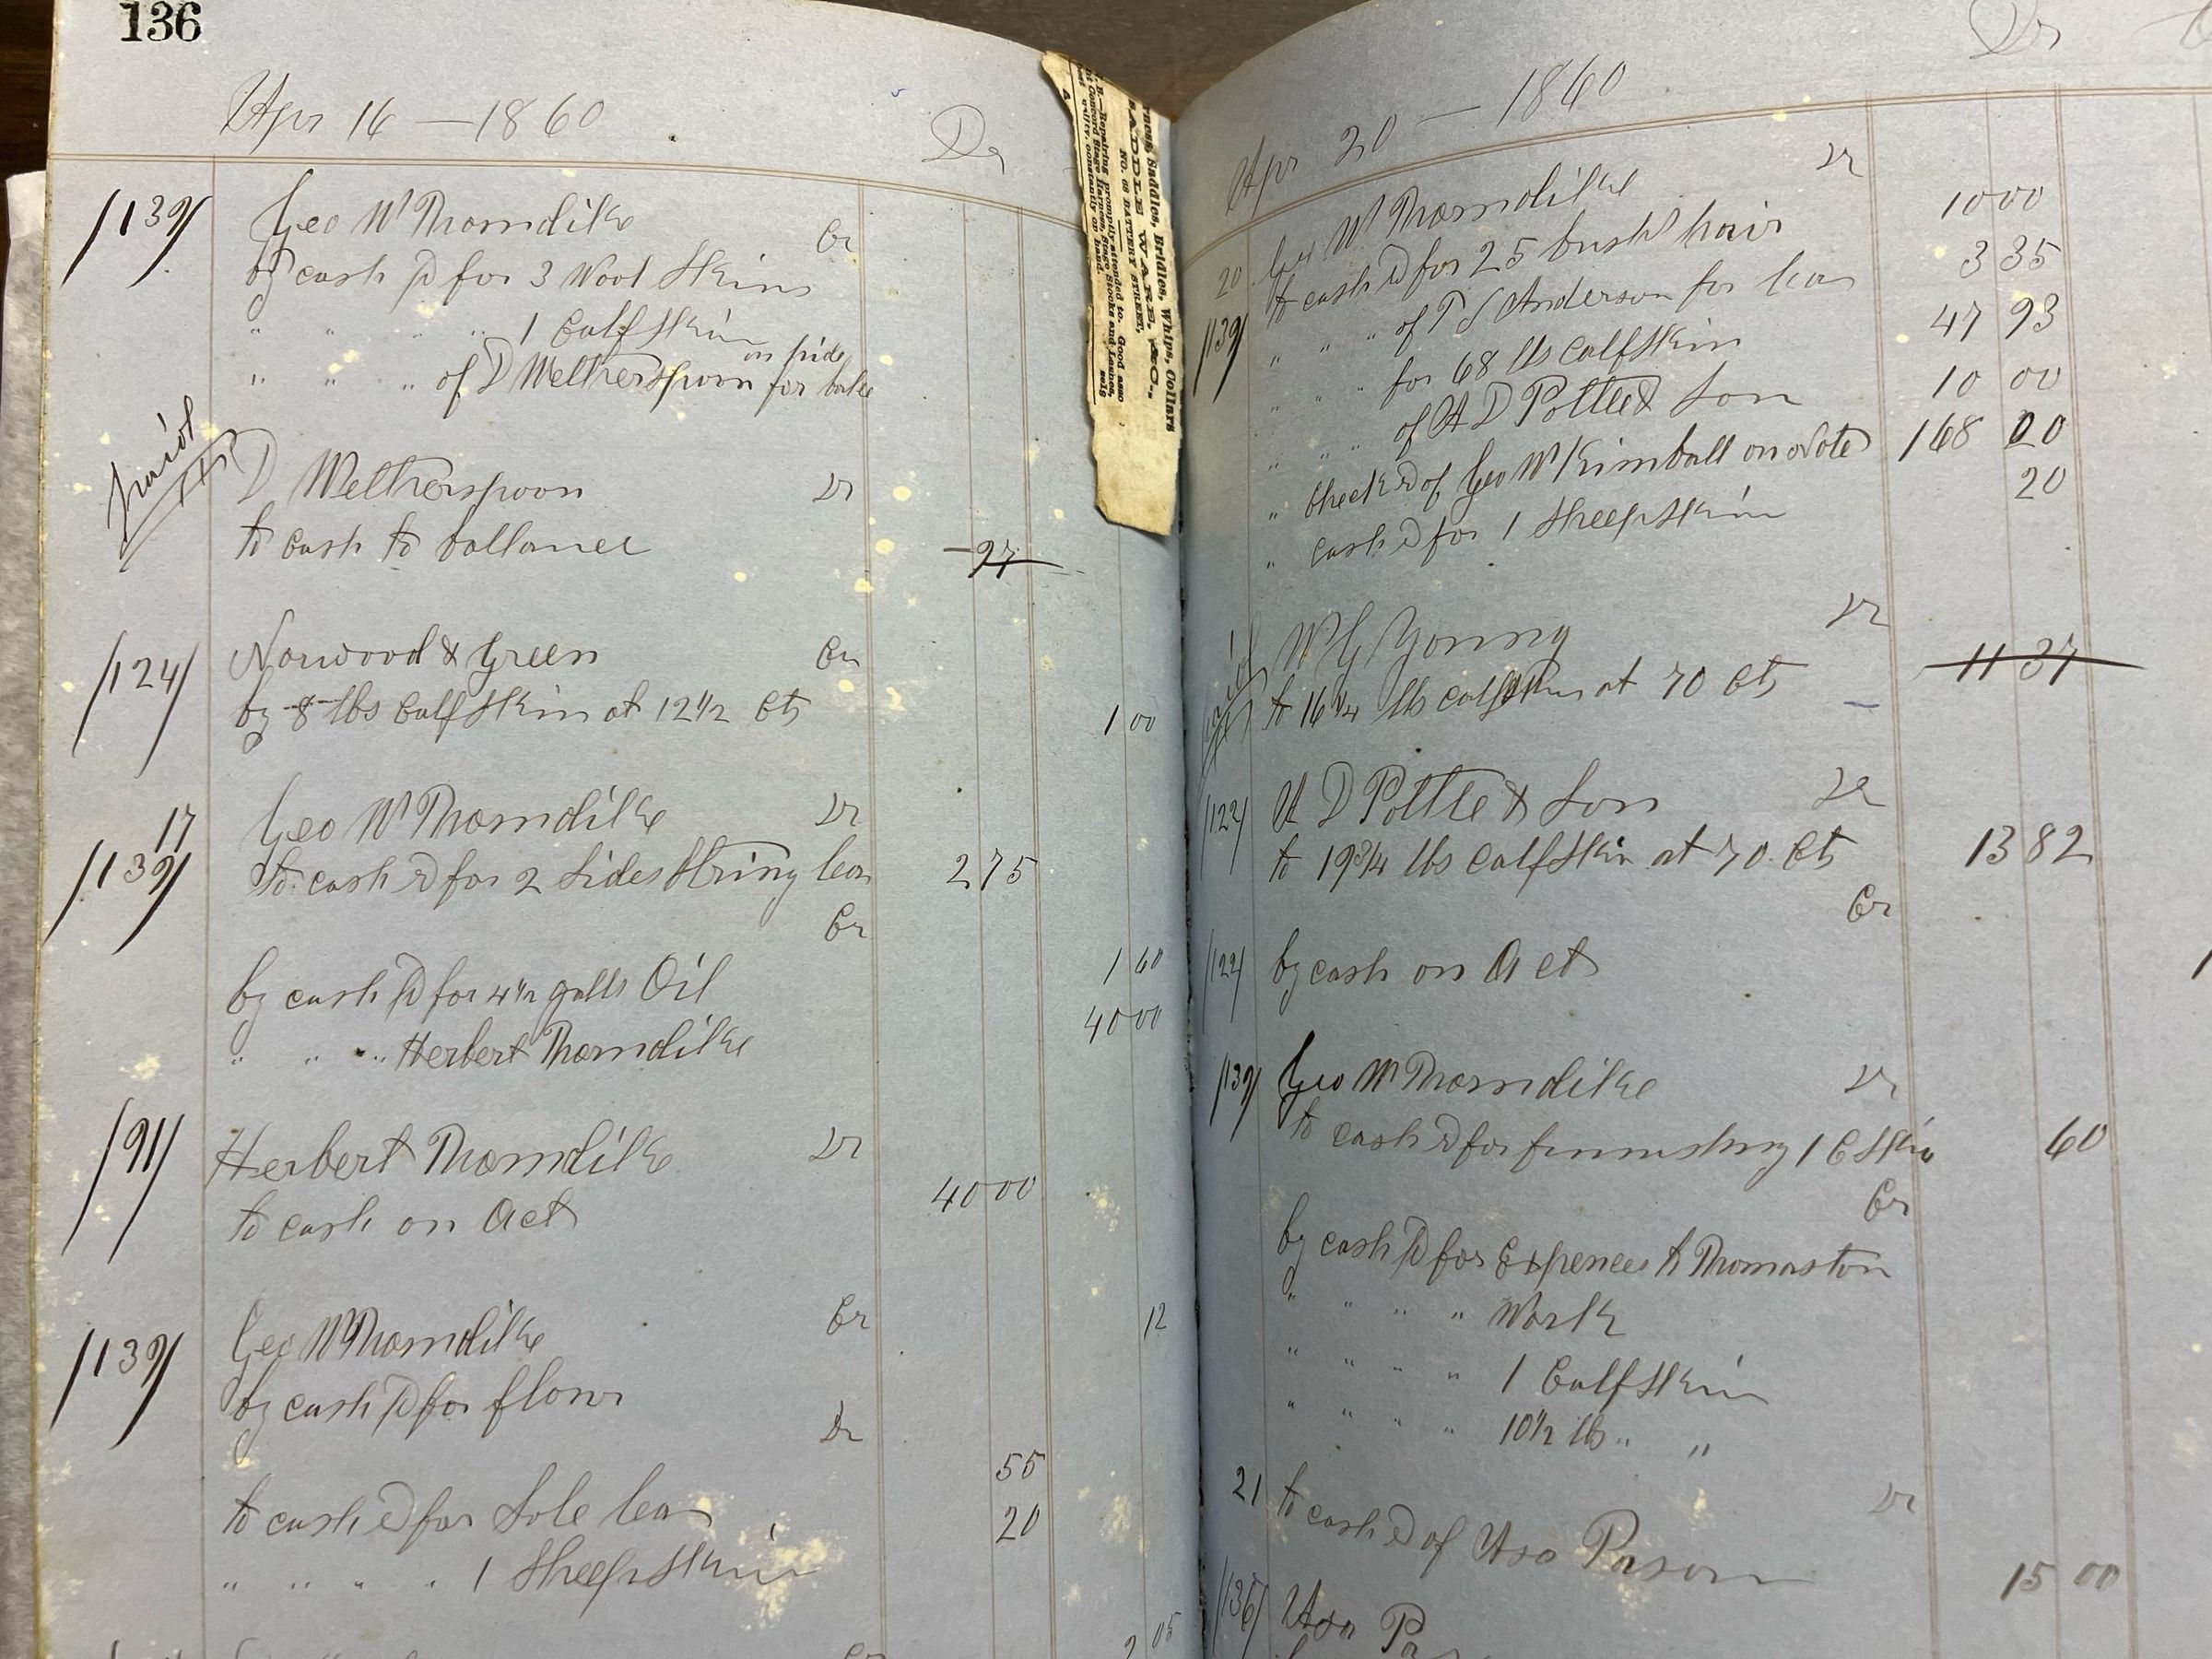 136
Apr 16 — 1860 Dr
139 Geo W Thorndike Cr
by cash pd for 3 Wool Skins
" " " " 1 Calf Skin
" " " of D Wetherspoon on hide for
paid D Wetherspoon Dr
to cash to ballance 97
124 Norwood & Green Cr
by 8 lbs Calf Skin at 12 1/2 Cts 1 00
17 Geo W Thorndike Dr
139 to cash rd for 2 Sides String lea 2 75
Cr
by cash pd for 4 1/2 galls Oil 1 60
" " " " Herbert Thorndike 40 00
91 Herbert Thorndike Dr
to cash on Act 40 00
139 Geo W Thorndike Cr 12
by cash pd for flour
Dr
to cash rd for Sole lea 55
" " " " 1 Sheep Skin 20
2 05
ness, Saddles, Bridles, Whips, Collars
SADDLE WARE, &C.,
NO. 68 BATTERY STREET,
B.—Repairing promptly attended to. Good
Concord Stage Harness, Stage Stocks and Lashes,
quality, constantly on hand.
Apr 20 — 1860 Dr
20 Geo W Thorndike Dr
139 to cash rd for 25 bush hair 10 00
" " " of T S Anderson for lea 3 35
" " for 68 lbs Calf Skin 47 93
" " " of A D Pottle & Son 10 00
" Check rd of Geo W Kimball on Note 168 20
" Cash rd for 1 Sheep Skin 20
paid W G Young Dr
to 16 1/4 lb calf Skin at 70 Cts 11 37
122 A D Pottle & Son Dr
to 19 3/4 lbs Calf Skin at 70 Cts 13 82
Cr
122 by cash on Act
139 Geo W Thorndike Dr
to cash rd for finnishing 1 C Skin 60
Cr
by cash pd for Expences to Thomaston
" " " " Work
" " " " 1 Calf Skin
" " " " 10 1/2 lb " "
21 Dr
to cash rd of Asa Pason 15 00
136 Asa